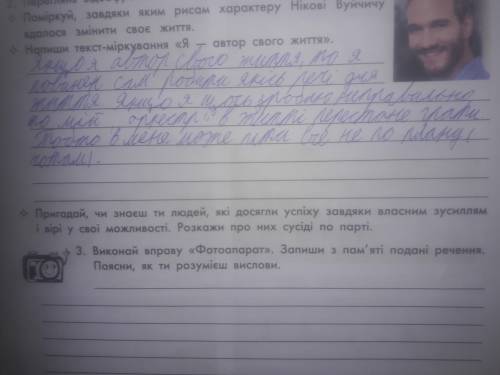 Поміркуй, завдяки яким рисам характеру Нікові Вуйчичу
вдалося змінити своє життя.
Напиши текст-міркування «Я — автор свого життя».
Якщо я автор свого життя, то я
повинен сам робити якісь речі для
життя якщо я щось зроблю неправильно
то мій оркестр в житті перестане грати
тобто в мене може піти все не по плану і
Пригадай, чи знаєш ти людей, які досягли успіху завдяки власним зусиллям
і вірі у свої можливості. Розкажи про них сусіді по парті.
3. Виконай вправу «Фотоапарат». Запиши з пам'яті подані речення.
Поясни, як ти розумієш вислови.